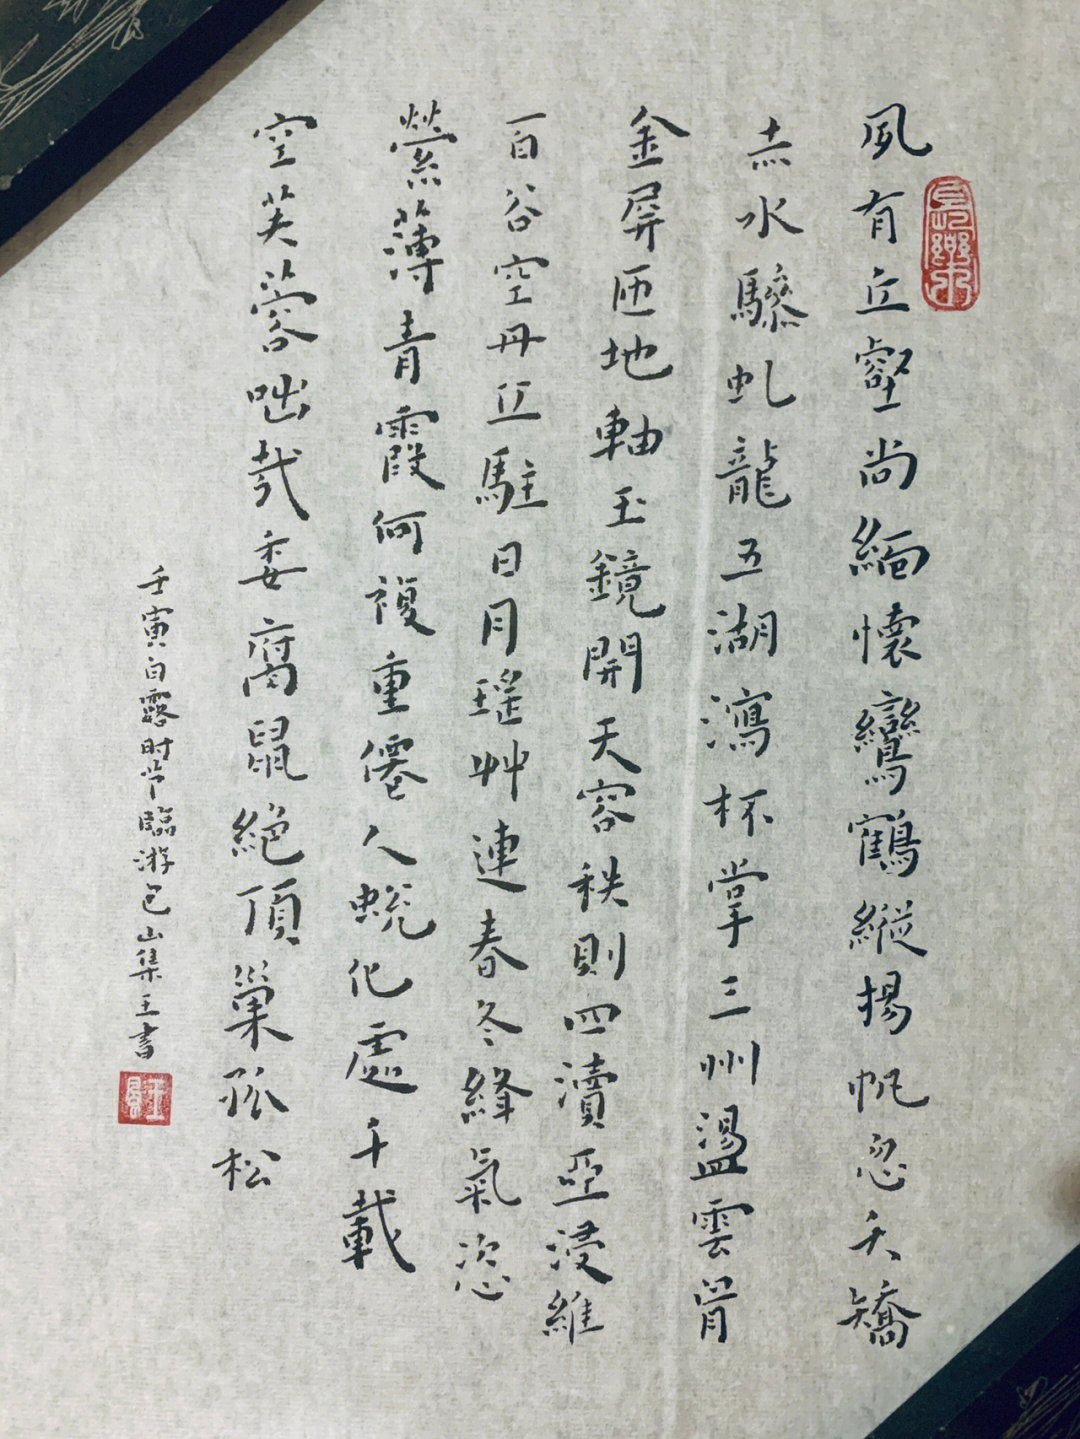 夙有丘壑尚緬懷鸞鶴縱揚帆忽夭矯
赤水驂虬龍五湖瀉杯掌三州盪雲胷
金屏匝地軸玉鏡開天容秩則四瀆亞浸維
百谷空丹丘駐日月瑤艸連春冬絳氣恣
縈薄青霞何複重僊人蛻化處千載
空芙蓉咄哉委腐鼠絕頂巢孤松
壬寅白露时节臨游包山集王書